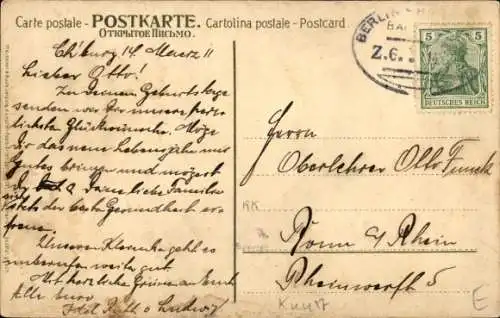 Carte postale - POSTKARTE. - Cartolina postale - Postcard
ОТКРЫТОЕ ПИСЬМО.
BERLIN
BA
Z.6.
5 5
DEUTSCHES REICH
Ch'burg 14. Maerz 11
Lieber Otto!
Zu Deinem Geburtstage
senden wir Dir unsere herz-
lichsten Glückwünsche. Möge
Dir das neue Lebensjahr nur
Gutes bringen und mögest
Du & Deine liebe Familie
stets der besten Gesundheit er-
freuen.
Unserem geht es
unberufen weiter gut
Mit herzlichen Grüssen an Euch
Alle Eure
Ludwig
Herrn
Oberlehrer Otto Funck
Bonn a/ Rhein
Rheinwerft 5
RK
E